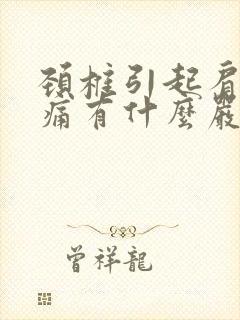 頚椎引起肩
痛有什麼嚴
曾祥龍